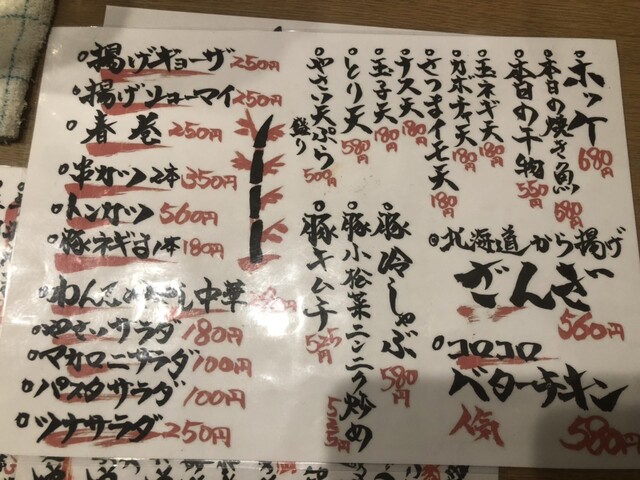 ホッケ 680円
本日の焼き魚 580円
本日の干物 550円
玉ネギ天 180円
カボチャ天 180円
さつまイモ天 180円
ナス天 180円
玉子天 180円
とり天 580円
やさい天ぷら盛り 500円
北海道から揚げ
ざんぎ 560円
コロコロ
バターチキン
人気 580円
豚冷しゃぶ 580円
豚小松菜ニンニク炒め 525円
豚キムチ 525円
揚げギョーザ 250円
揚げシューマイ 250円
春巻 250円
串カツ2本 350円
トンカツ 560円
豚ネギま1本 180円
中華
やさいサラダ 180円
マカロニサラダ 100円
パスタサラダ 100円
ツナサラダ 250円